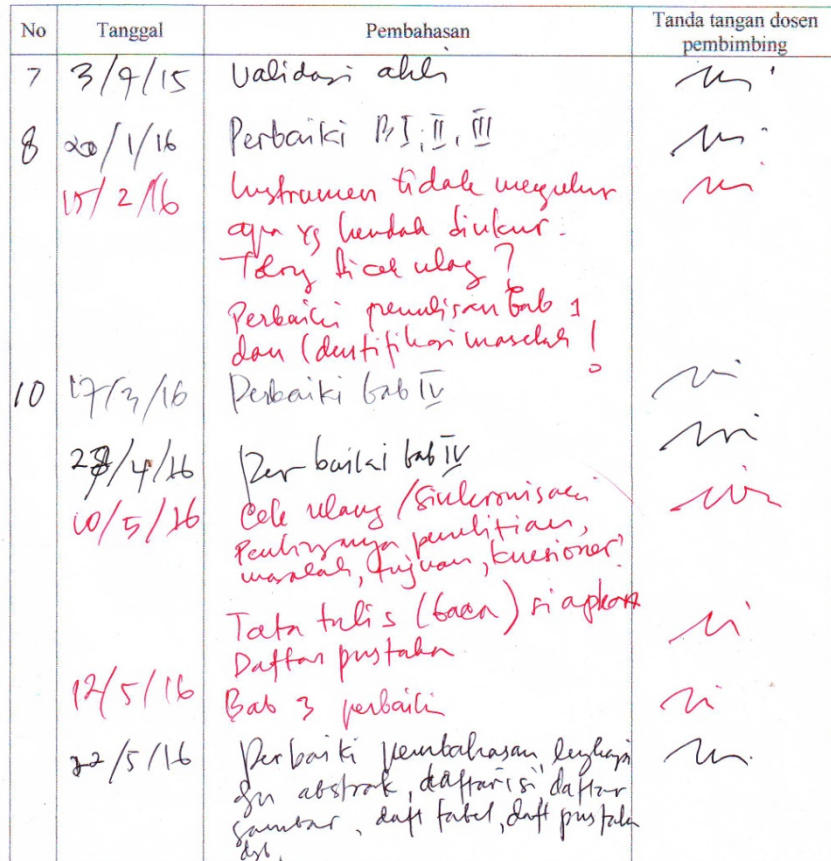 No Tanggal Pembahasan Tanda tangan dosen
pembimbing
7 3/9/15 Validasi ahli
8 20/1/16 Perbaiki B I, II, III
15/2/16 Instrumen tidak megukur
apa yg hendak diukur.
Tolong dicek ulang?
Perbaiki penulisan bab 1
dan identifikasi masalah!
10 17/3/16 Perbaiki bab IV
/4/16 Perbaiki bab IV
10/5/16 Cek ulang/Sinkronisasi
Pentingnya penelitian,
masalah, tujuan, kuesioner!
Tata tulis (baca) siapkan
Daftar pustaka
12/5/16 Bab 3 perbaiki
22/5/16 Perbaiki pembahasan, lengkapi
dgn abstrak, daftar isi, daftar
gambar, daft tabel, daft pustaka
dsb.